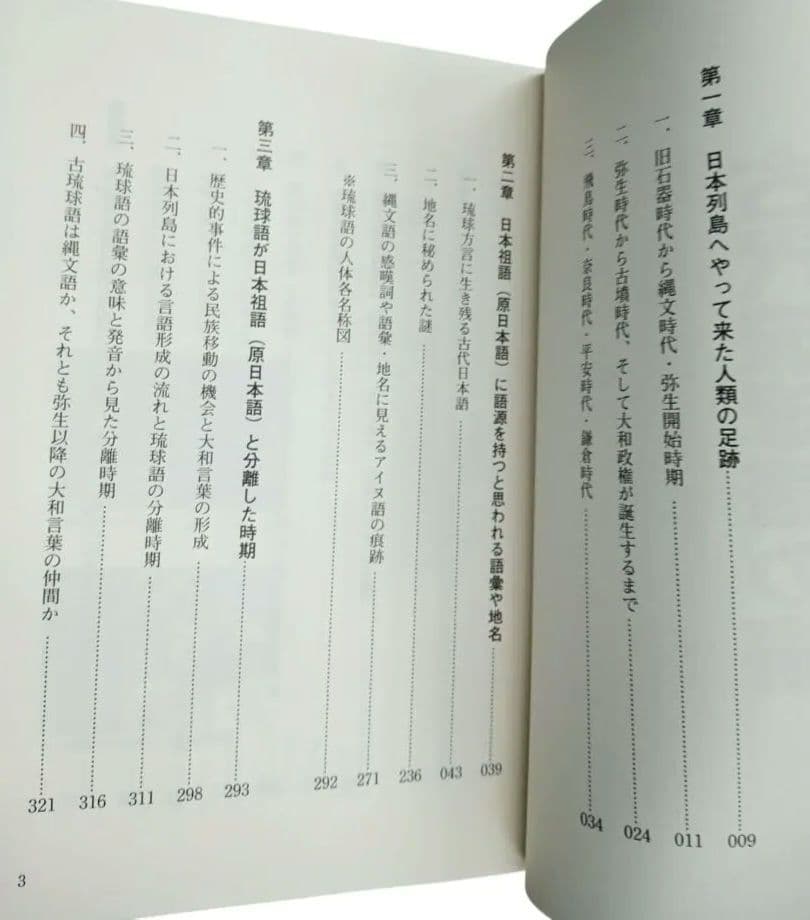 第一章　日本列島へやって来た人類の足跡……009
一、旧石器時代から縄文時代・弥生開始時期……011
二、弥生時代から古墳時代、そして大和政権が誕生するまで……024
三、飛鳥時代・奈良時代・平安時代・鎌倉時代……034
第二章　日本祖語（原日本語）に語源を持つと思われる語彙や地名……039
一、琉球方言に生き残る古代日本語……043
二、地名に秘められた謎……236
三、縄文語の感嘆詞や語彙・地名に見えるアイヌ語の痕跡……271
※琉球語の人体各名称図……292
第三章　琉球語が日本祖語（原日本語）と分離した時期……293
一、歴史的事件による民族移動の機会と大和言葉の形成……298
二、日本列島における言語形成の流れと琉球語の分離時期……311
三、琉球語の語彙の意味と発音から見た分離時期……316
四、古琉球語は縄文語か、それとも弥生以降の大和言葉の仲間か……321
3